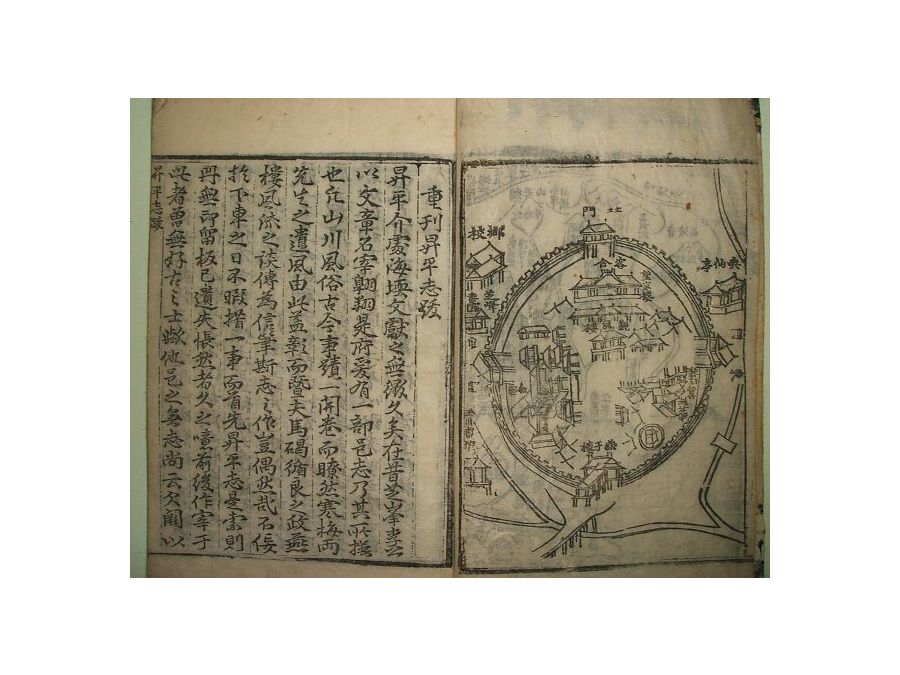 北門
鄕校
客舍
望京樓
喚仙亭
燕子樓
重刊昇平志跋
昇平介處海堧文獻之無徵久矣在昔芝峯李公
以文章名宰翶翔是府爰有一部邑志乃其所撰
也凡山川風俗古今事蹟一開卷而瞭然寒梅兩
先生之遺風由此益彰而曁夫馬碣循良之政燕
樓風流之談傳爲信筆斯志之作豈偶然哉不佞
於下車之日不暇措一事而首先昇平志是索則
冊無印留板已遺失悵然者久之噫前後作宰于
此者曾無好古之士歟他邑之無志尚云欠闕以
昇平志跋